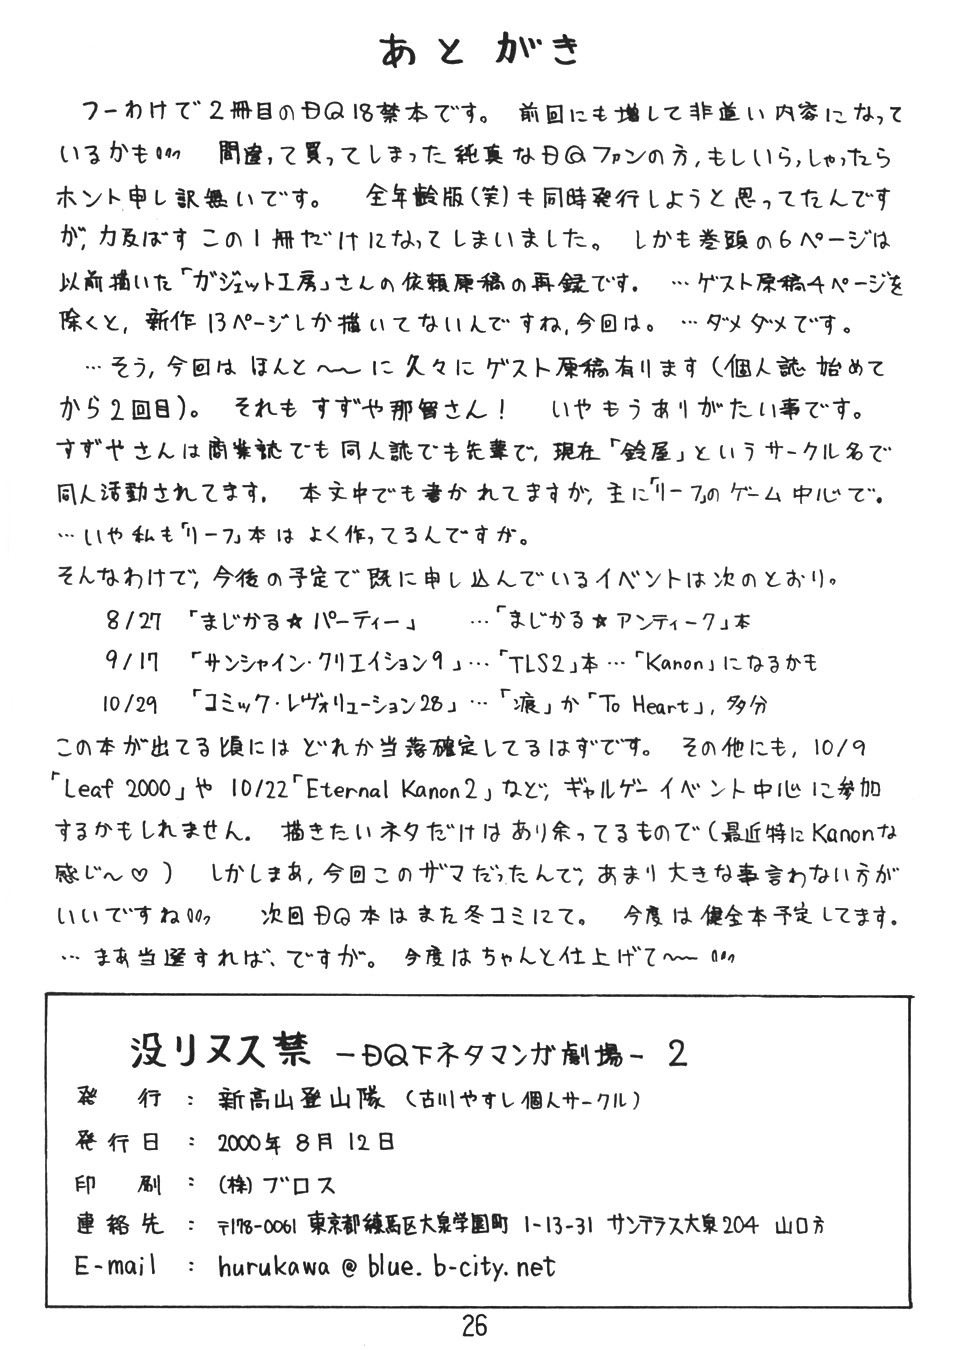 あとがき
フーわけで2冊目のDQ18禁本です。 前回にも増して非道い内容になって
いるかも 間違って買ってしまった純真なDQファンの方,もしいらっしゃったら
ホント申し訳無いです。 全年齢版(笑)も同時発行しようと思ってたんです
が,力及ばずこの1冊だけになってしまいました。 しかも巻頭の6ページは
以前描いた「ガジェット工房」さんの依頼原稿の再録です. …ゲスト原稿4ページを
除くと, 新作13ページしか描いてないんですね,今回は。…ダメダメです。
…そう,今回はほんと〜〜に久々にゲスト原稿有ります(個人誌始めて
から2回目)。 それもすずや那智さん! いやもうありがたい事です。
すずやさんは商業誌でも同人誌でも先輩で,現在「鈴屋」というサークル名で
同人活動されてます. 本文中でも書かれてますが,主に「リーフ」のゲーム中心で。
…いや私も「リーフ」本はよく作ってるんですが。
そんなわけで,今後の予定で既に申し込んでいるイベントは次のとおり。
8/27 「まじかる☆パーティー」 …「まじかる☆アンティーク」本
9/17 「サンシャイン・クリエイション9」…「TLS2」本…「Kanon」になるかも
10/29 「コミック・レヴォリューション28」…「痕」か「To Heart」,多分
この本が出てる頃にはどれか当落確定してるはずです。 その他にも,10/9
「Leaf 2000」や10/22「Eternal Kanon2」など,ギャルゲーイベント中心に参加
するかもしれません. 描きたいネタだけはあり余ってるもので(最近特にKanonな
感じ〜♡) しかしまあ,今回このザマだったんで,あまり大きな事言わない方が
いいですね 次回DQ本はまた冬コミにて。 今度は健全本予定してます.
…まあ当選すれば、ですが。 今度はちゃんと仕上げて〜〜
没リヌス禁 −DQ下ネタマンガ劇場− 2
発行 : 新高山登山隊 (古川やすし個人サークル)
発行日 : 2000年8月12日
印刷 : (株)ブロス
連絡先 : 〒178-0061 東京都練馬区大泉学園町 1-13-31 サンテラス大泉204 山口方
E-mail : hurukawa@blue.b-city.net
26